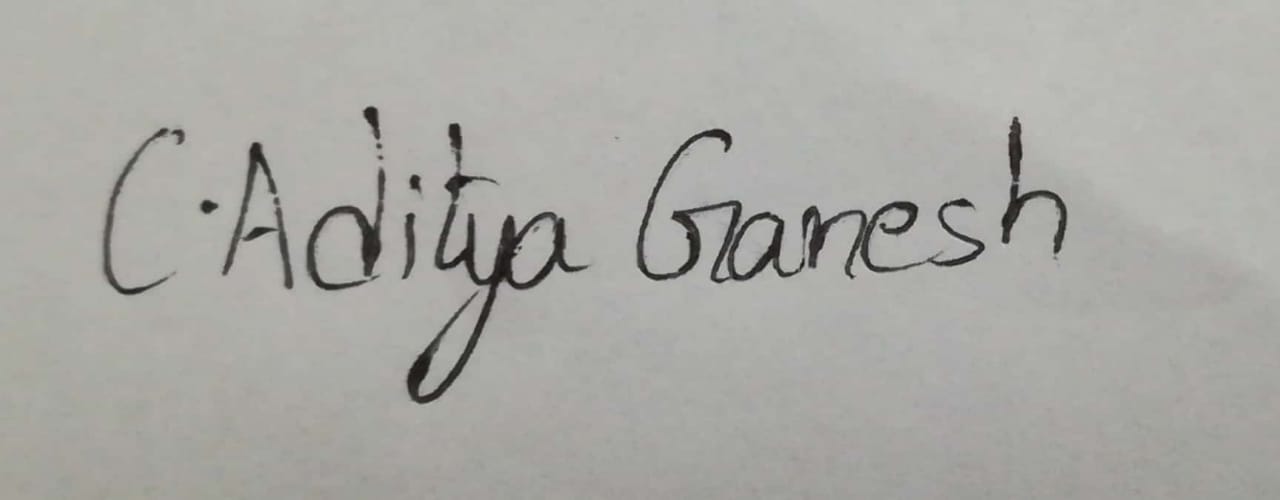 C.Aditya Ganesh